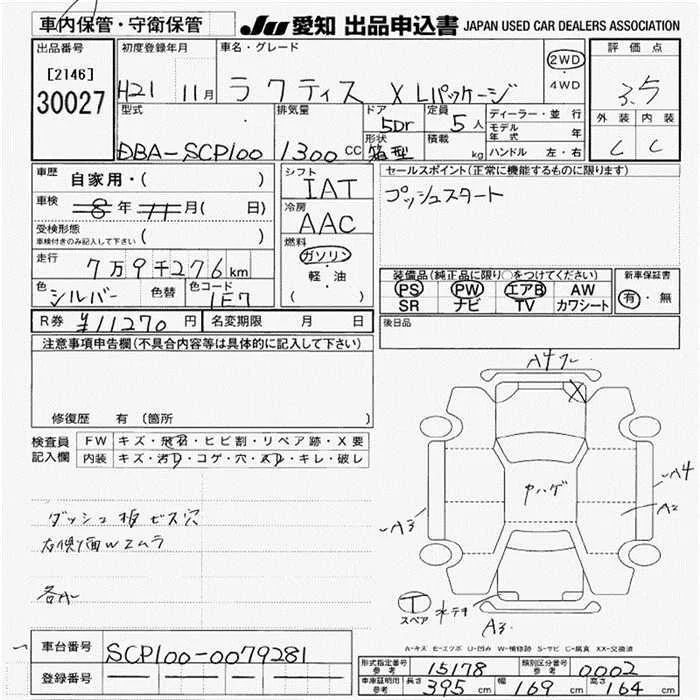 車内保管・守衛保管
JU 愛知 出品申込書 JAPAN USED CAR DEALERS ASSOCIATION
出品番号
[2146]
30027
初度登録年月
H21 11月
車名・グレード
ラクティス X Lパッケージ
2WD
・
4WD
評価点
3.5
外装 内装
C C
型式
DBA-SCP100
排気量
1300 CC
ドア
5Dr
形状
箱型
定員
5人
積載
kg
ディーラー・並行
モデル年式 年
ハンドル 左・右
車歴
自家用・( )
車検
8年11月( 日)
受検形態
車検付きのみ記入して下さい ( )
走行
7万9千276km
色 シルバー 色替 色コード 1E7
シフト
IAT
冷房
AAC
燃料
ガソリン
・
軽・油
( )
セールスポイント(正常に機能するものに限ります)
プッシュスタート
装備品(純正品に限り○をつけてください)
PS PW エアB AW
SR ナビ TV カワシート
新車保証書
有・無
R券 ¥11270円 名変期限 月 日
後日品
注意事項申告欄(不具合内容等は具体的に記入して下さい)
修復歴 有 (箇所 )
検査員
記入欄
FW キズ・飛石・ヒビ割・リペア跡・X要
内装 キズ・汚レ・コゲ・穴・スレ・キレ・破レ
ダッシュ板ビス穴
右側面Wエムラ
A4
X
ヤハゲ
A3
A4
A2
A3
T
スペア
A-キズ E-エクボ U-凹み W-補修跡 S-サビ C-腐食 XX-交換済
車台番号 SCP100-0079281
登録番号
型式指定番号
参考
15178
類別区分番号
参考
0002
車庫証明用
参考
長さ 395cm 幅 169cm 高さ 164cm